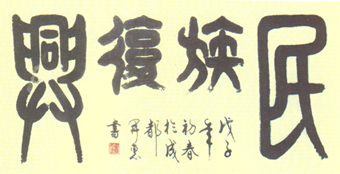 民族復興
戊子
年
初春
於成
都
書